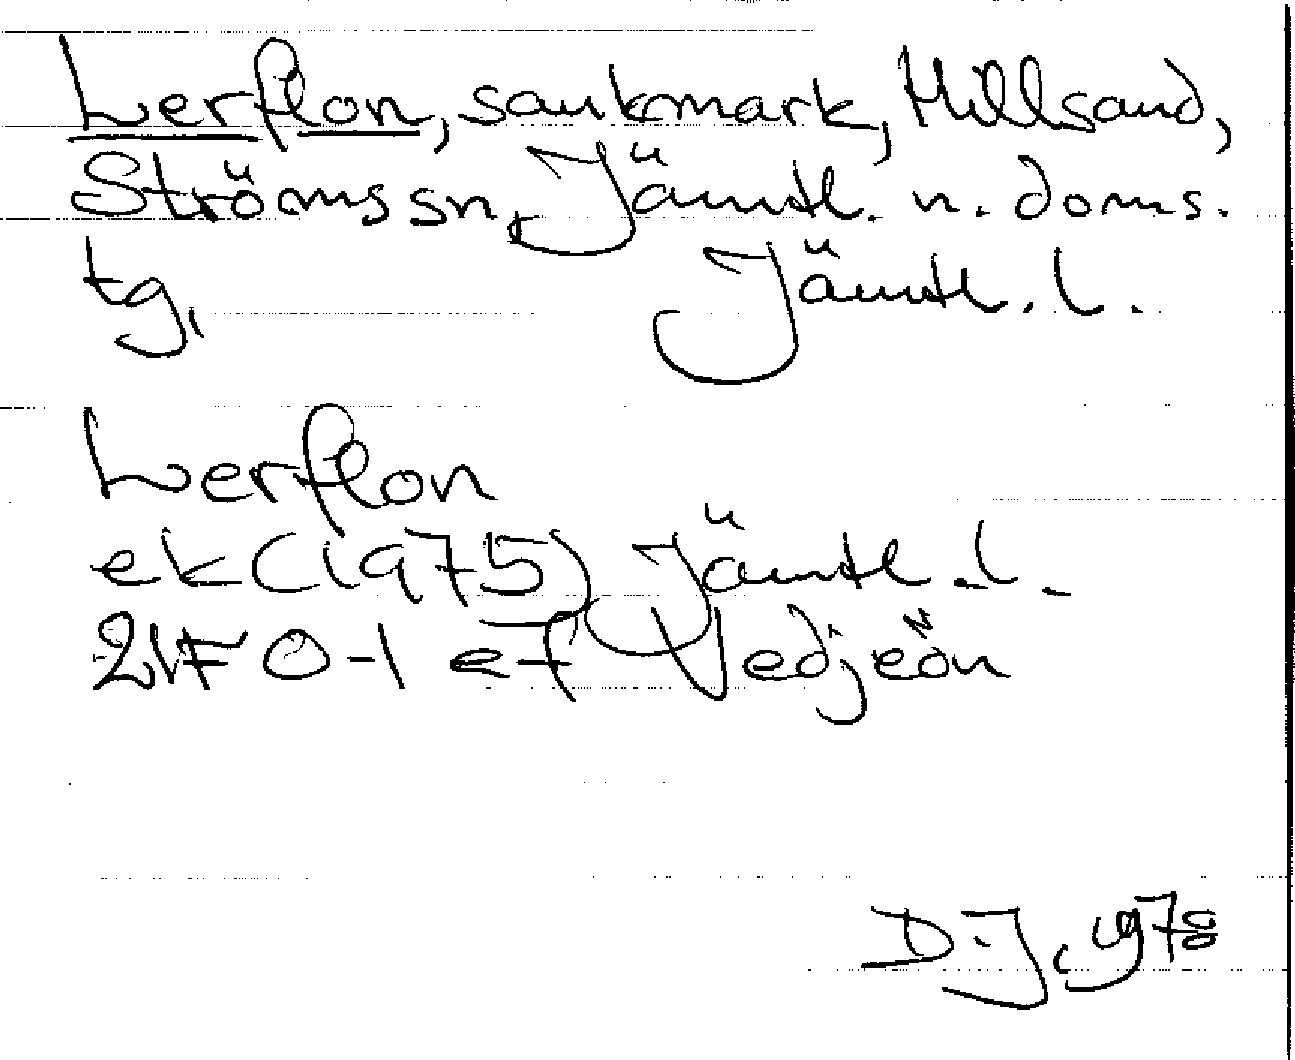 Lerflon, sankmark, Hillsand,
Ströms sn, Jämtl. n. doms.
tg,   Jämtl. l.
Lerflon
ek (1975) Jämtl. l.
21F 0-1 ef Vedjeön
D.J. 1978